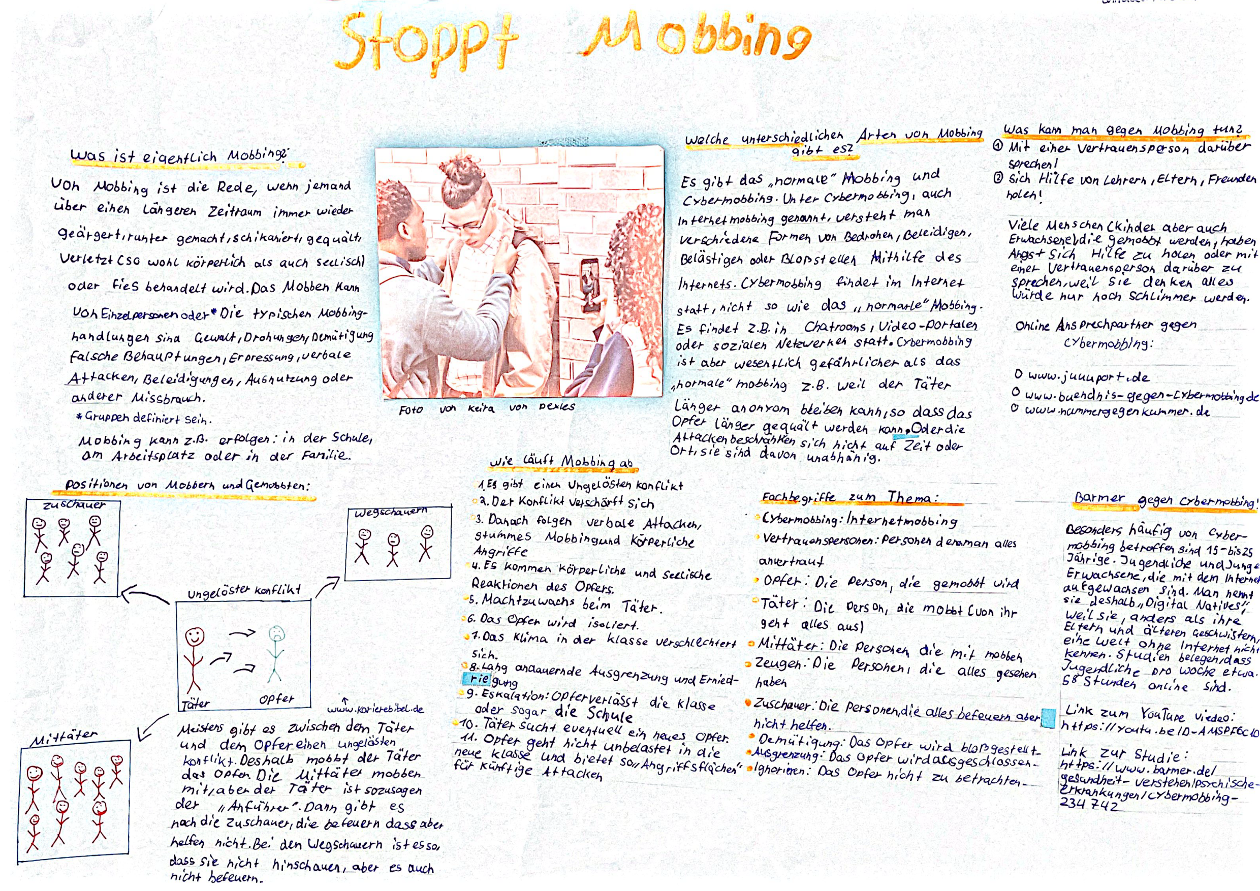 Stoppt Mobbing
Was ist eigentlich Mobbing?
Von Mobbing ist die Rede, wenn jemand
über einen Längeren Zeitraum immer wieder
geärgert, runter gemacht, schikaniert, gequält,
verletzt (so wohl körperlich als auch seelisch)
oder fies behandelt wird. Das Mobben kann
von Einzelpersonen oder* Die typischen Mobbing-
handlungen sind Gewalt, Drohungen, Demütigung
falsche Behauptungen, Erpressung, verbale
Attacken, Beleidigungen, Ausnutzung oder
anderer Missbrauch.
*Gruppen definiert sein.
Mobbing kann z.B. erfolgen: in der Schule,
am Arbeitsplatz oder in der Familie.
Foto von keira von pexles
Welche unterschiedlichen Arten von Mobbing
gibt es?
Es gibt das „normale" Mobbing und
Cybermobbing. Unter Cybermobbing, auch
Internetmobbing genannt, versteht man
verschiedene Formen von Bedrohen, Beleidigen,
Belästigen oder Blopstellen Mithilfe des
Internets. Cybermobbing findet im Internet
statt, nicht so wie das „normale" Mobbing.
Es findet z.B. in Chatrooms, Video-Portalen
oder sozialen Netzwerken statt. Cybermobbing
ist aber wesentlich gefährlicher als das
„normale" mobbing z.B. weil der Täter
Länger anonyom bleiben kann, so dass das
Opfer länger gequält werden kann. Oder die
Attacken beschränken sich nicht auf Zeit oder
Ort, sie sind davon unabhänig.
Was kam man gegen Mobbing tun?
① Mit einer Vertrauensperson darüber
sprechen!
② Sich Hilfe von Lehrern, Eltern, Freunden
holen!
Viele Menschen (Kinder aber auch
Erwachsene) die gemobbt werden, haben
Angst sich Hilfe zu holen oder mit
einer Vertrauensperson darüber zu
sprechen, weil sie denken alles
würde nur noch schlimmer werden.
Online Ansprechpartner gegen
Cybermobbing:
O www.juuuport.de
O www.buendnis-gegen-cybermobbing.de
O www.nummergegenkummer.de
Positionen von Mobbern und Gemobbten:
Zuschauer
Wegschauern
Ungelöster Konflikt
Täter
Opfer
www.karrierebibel.de
Mittäter
Meistens gibt es zwischen dem Täter
und dem Opfer einen ungelösten
Konflikt. Deshalb mobbt der Täter
das Opfer. Die Mittäter mobben
mit, aber der Täter ist sozusagen
der „Anführer". Dann gibt es
noch die Zuschauer, die befeuern dass aber
helfen nicht. Bei den Wegschauern ist es so,
dass sie nicht hinschauen, aber es auch
nicht befeuern.
Wie läuft Mobbing ab
1. Es gibt einen Ungelösten Konflikt
2. Der Konflikt verschärft sich
3. Danach folgen verbale Attacken,
stummes Mobbing und Körperliche
Angriffe
4. Es kommen körperliche und seelische
Reaktionen des Opfers.
5. Machtzuwachs beim Täter.
6. Das Opfer wird isoliert.
7. Das Klima in der Klasse verschlechtert
sich.
8. Lang andauernde Ausgrenzung und Ernied-
riegung
9. Eskalation: Opfer verlässt die Klasse
oder sogar die Schule
10. Täter sucht eventuell ein neues Opfer
11. Opfer geht nicht unbelastet in die
neue Klasse und bietet so „Angriffsflächen"
für künftige Attacken
Fachbegriffe zum Thema:
Cybermobbing: Internetmobbing
Vertrauenspersonen: Personen denen man alles
anvertraut
Opfer: Die Person, die gemobbt wird
Täter: Die Person, die mobbt (von ihr
geht alles aus)
Mittäter: Die Personen, die mit mobben
Zeugen: Die Personen, die alles gesehen
haben
Zuschauer: Die Personen, die alles befeuern aber
nicht helfen.
Demütigung: Das Opfer wird bloßgestellt
Ausgrenzung: Das Opfer wird ausgeschlossen
Ignorieren: Das Opfer nicht zu betrachten
Barmer gegen Cybermobbing!
Besonders häufig von Cyber-
mobbing betroffen sind 15-bis 25
Jährige. Jugendliche und Junge
Erwachsene, die mit dem Internet
aufgewachsen sind. Man nennt
sie deshalb „Digital Natives",
weil sie, anders als ihre
Eltern und älteren Geschwister,
eine Welt ohne Internet nicht
kennen. Studien belegen, dass
Jugendliche pro Woche etwa
58 Stunden online sind.
Link zum YouTube Viedeo:
Link zur Studie:
https://www.barmer.de/
gesundheit-verstehen/psychische-
erkrankungen/cybermobbing-
234 742